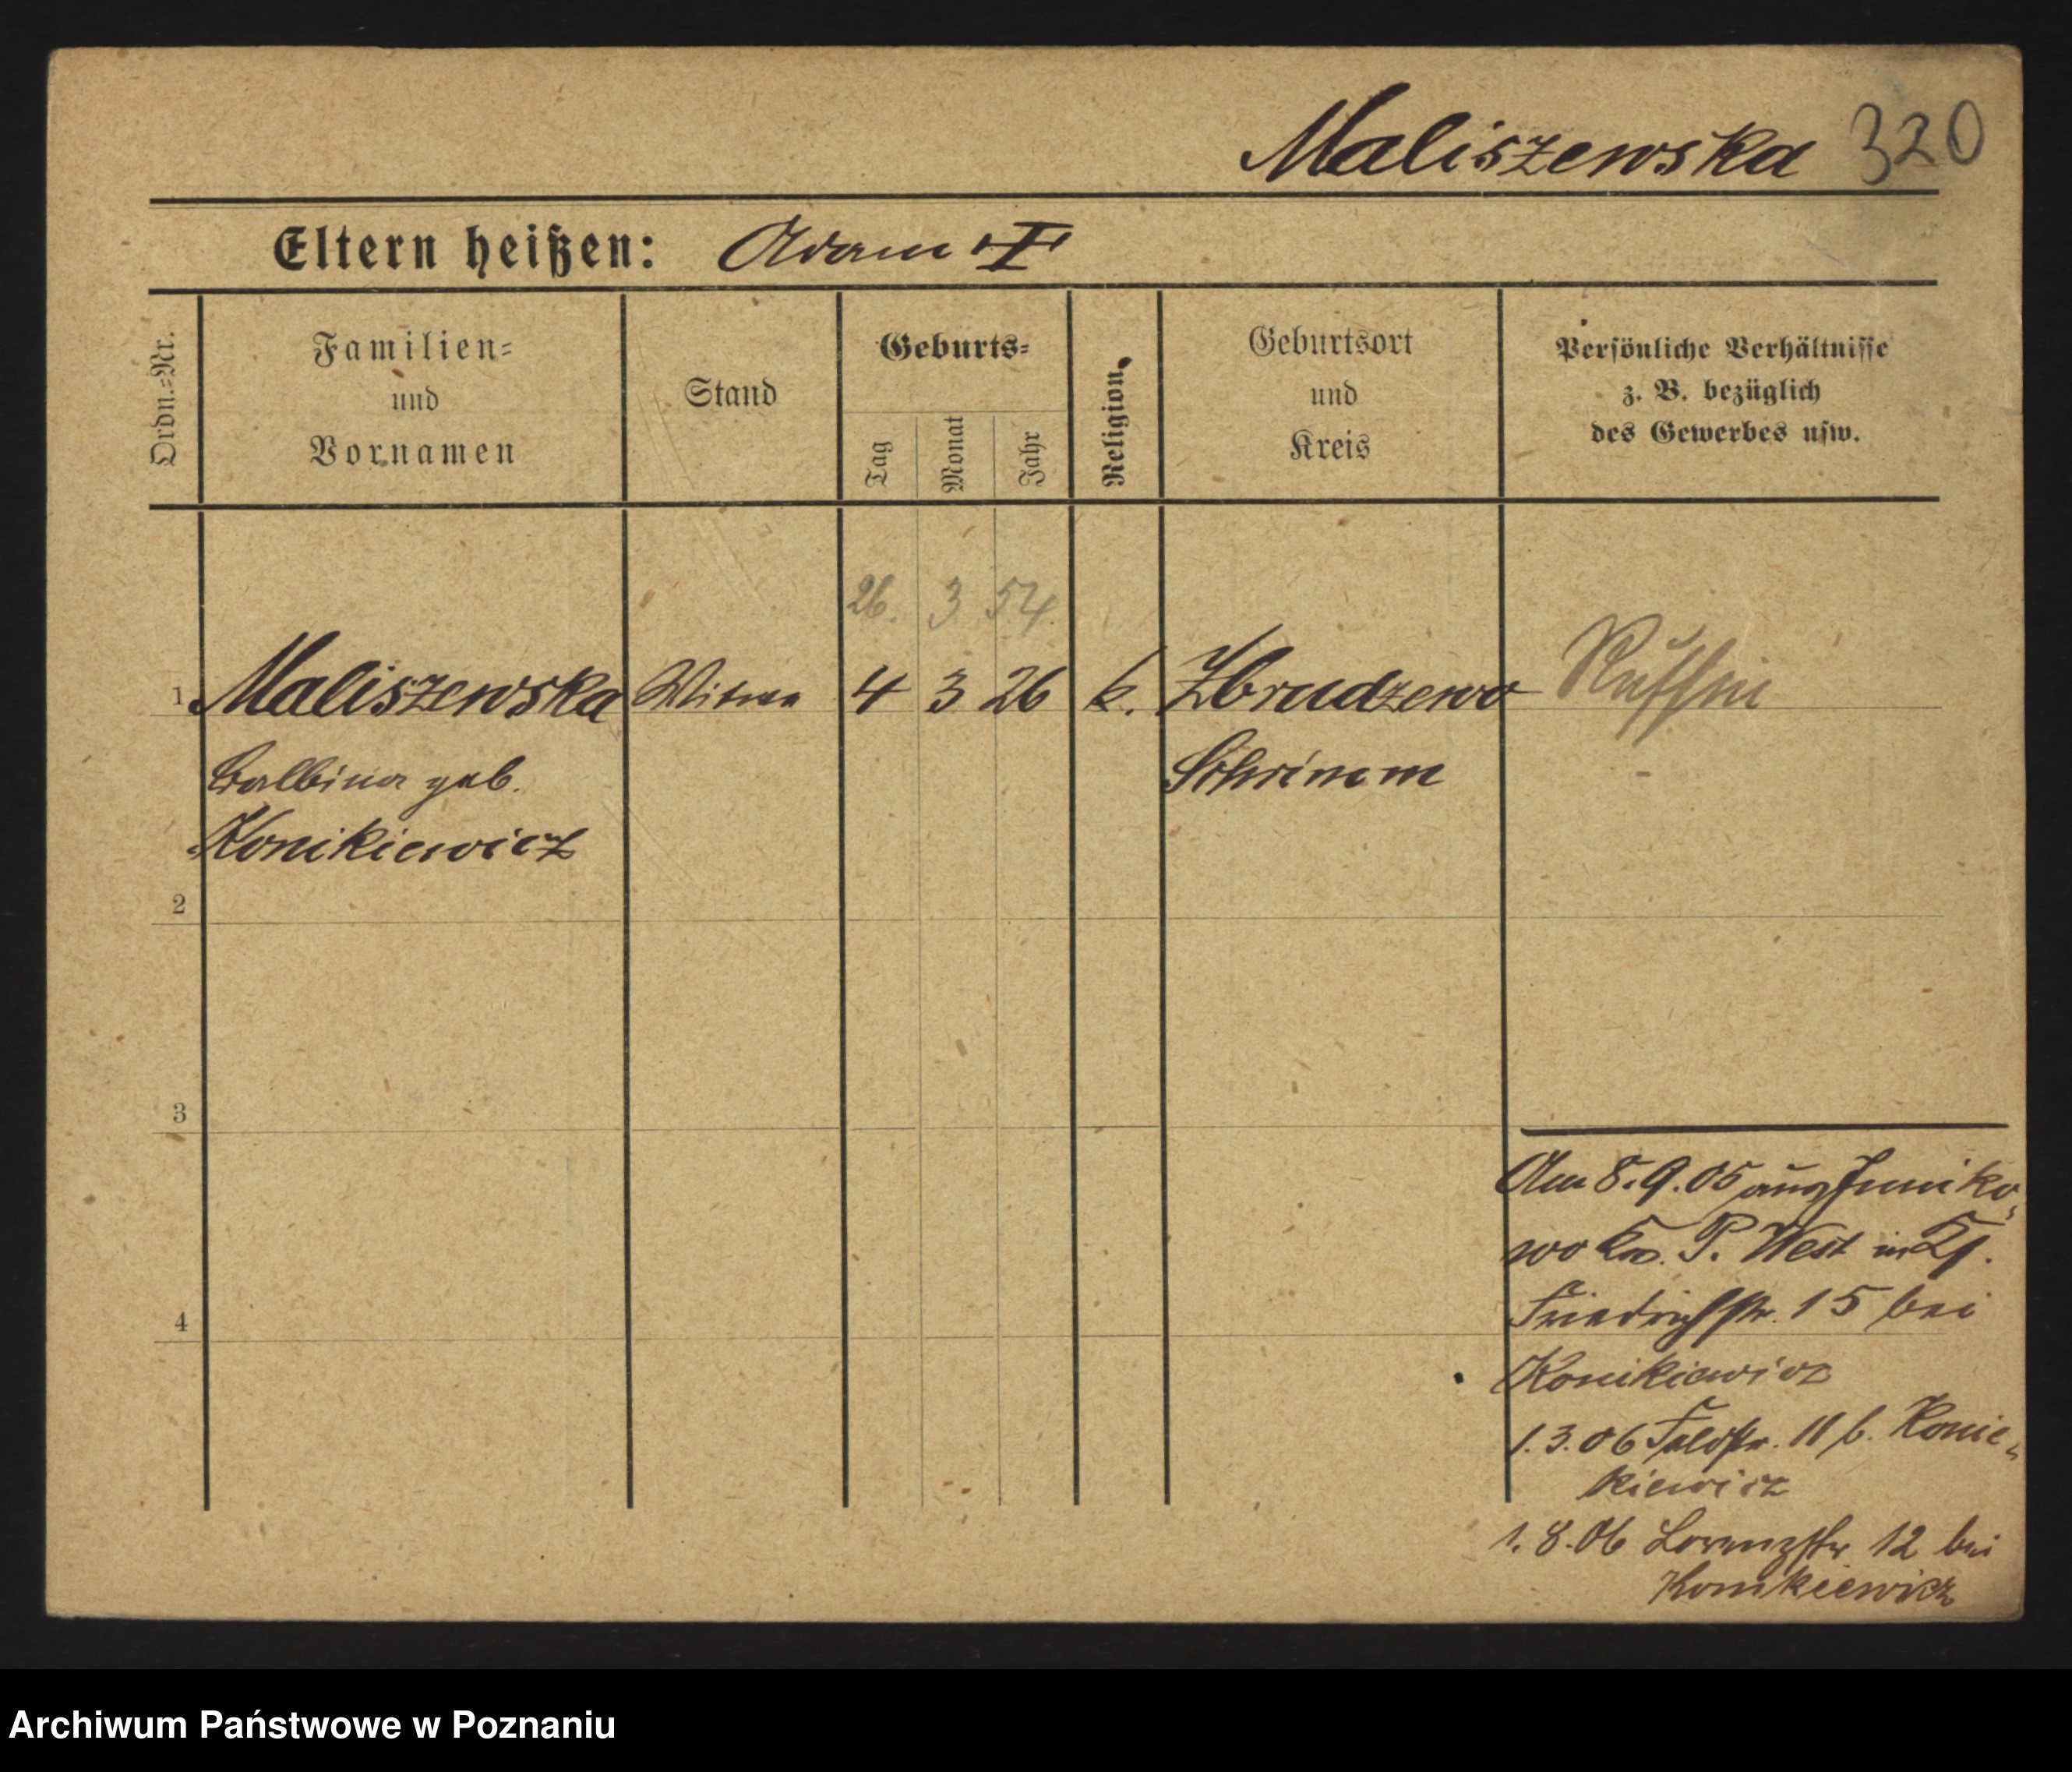 Maliszewska 320
Eltern heißen: Adam
Ordn.-Nr.
Familien-
und
Vornamen
Stand
Geburts-
Tag
Monat
Jahr
Religion.
Geburtsort
und
Kreis
Persönliche Verhältnisse
z. B. bezüglich
des Gewerbes usw.
26. 3 54.
1 Maliszewska Witwe 4 3 26 k. Zbrudzewo
Balbina geb. Schrimm
Konikiewicz
2
3
Am 8.9.05 aus Juniko-
wo Krs. P. West in
Friedrichstr. 15 bei
4
Konikiewicz
1.3.06 Feldstr. 11 b. Konie-
kiewicz
1.8.06 Lorenzstr. 12 bei
Konikiewicz
Archiwum Państwowe w Poznaniu